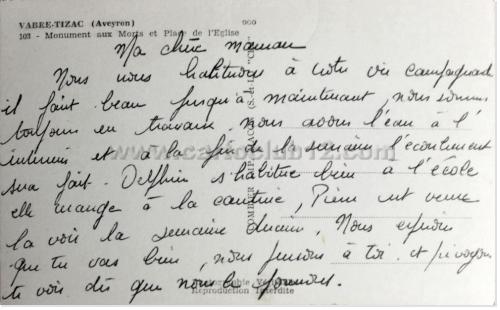 VABRE-TIZAC (Aveyron)
103 - Monument aux Morts et Place de l'Eglise
Ma chère maman
Nous nous habituons à notre vie campagnarde
il fait beau jusqu'à maintenant, nous sommes
toujours en travaux, nous avons l'eau à l'
intérieur et à la fin de la semaine l'écoulement
sera fait. Delphine s'habitue bien à l'école
elle mange à la cantine, Pierre est venu
la voir la semaine Nous espérons
que tu vas bien, nous pensons à toi et
te voir dès que nous le pourrons.
Reproduction Interdite
www.cartoclub12.com